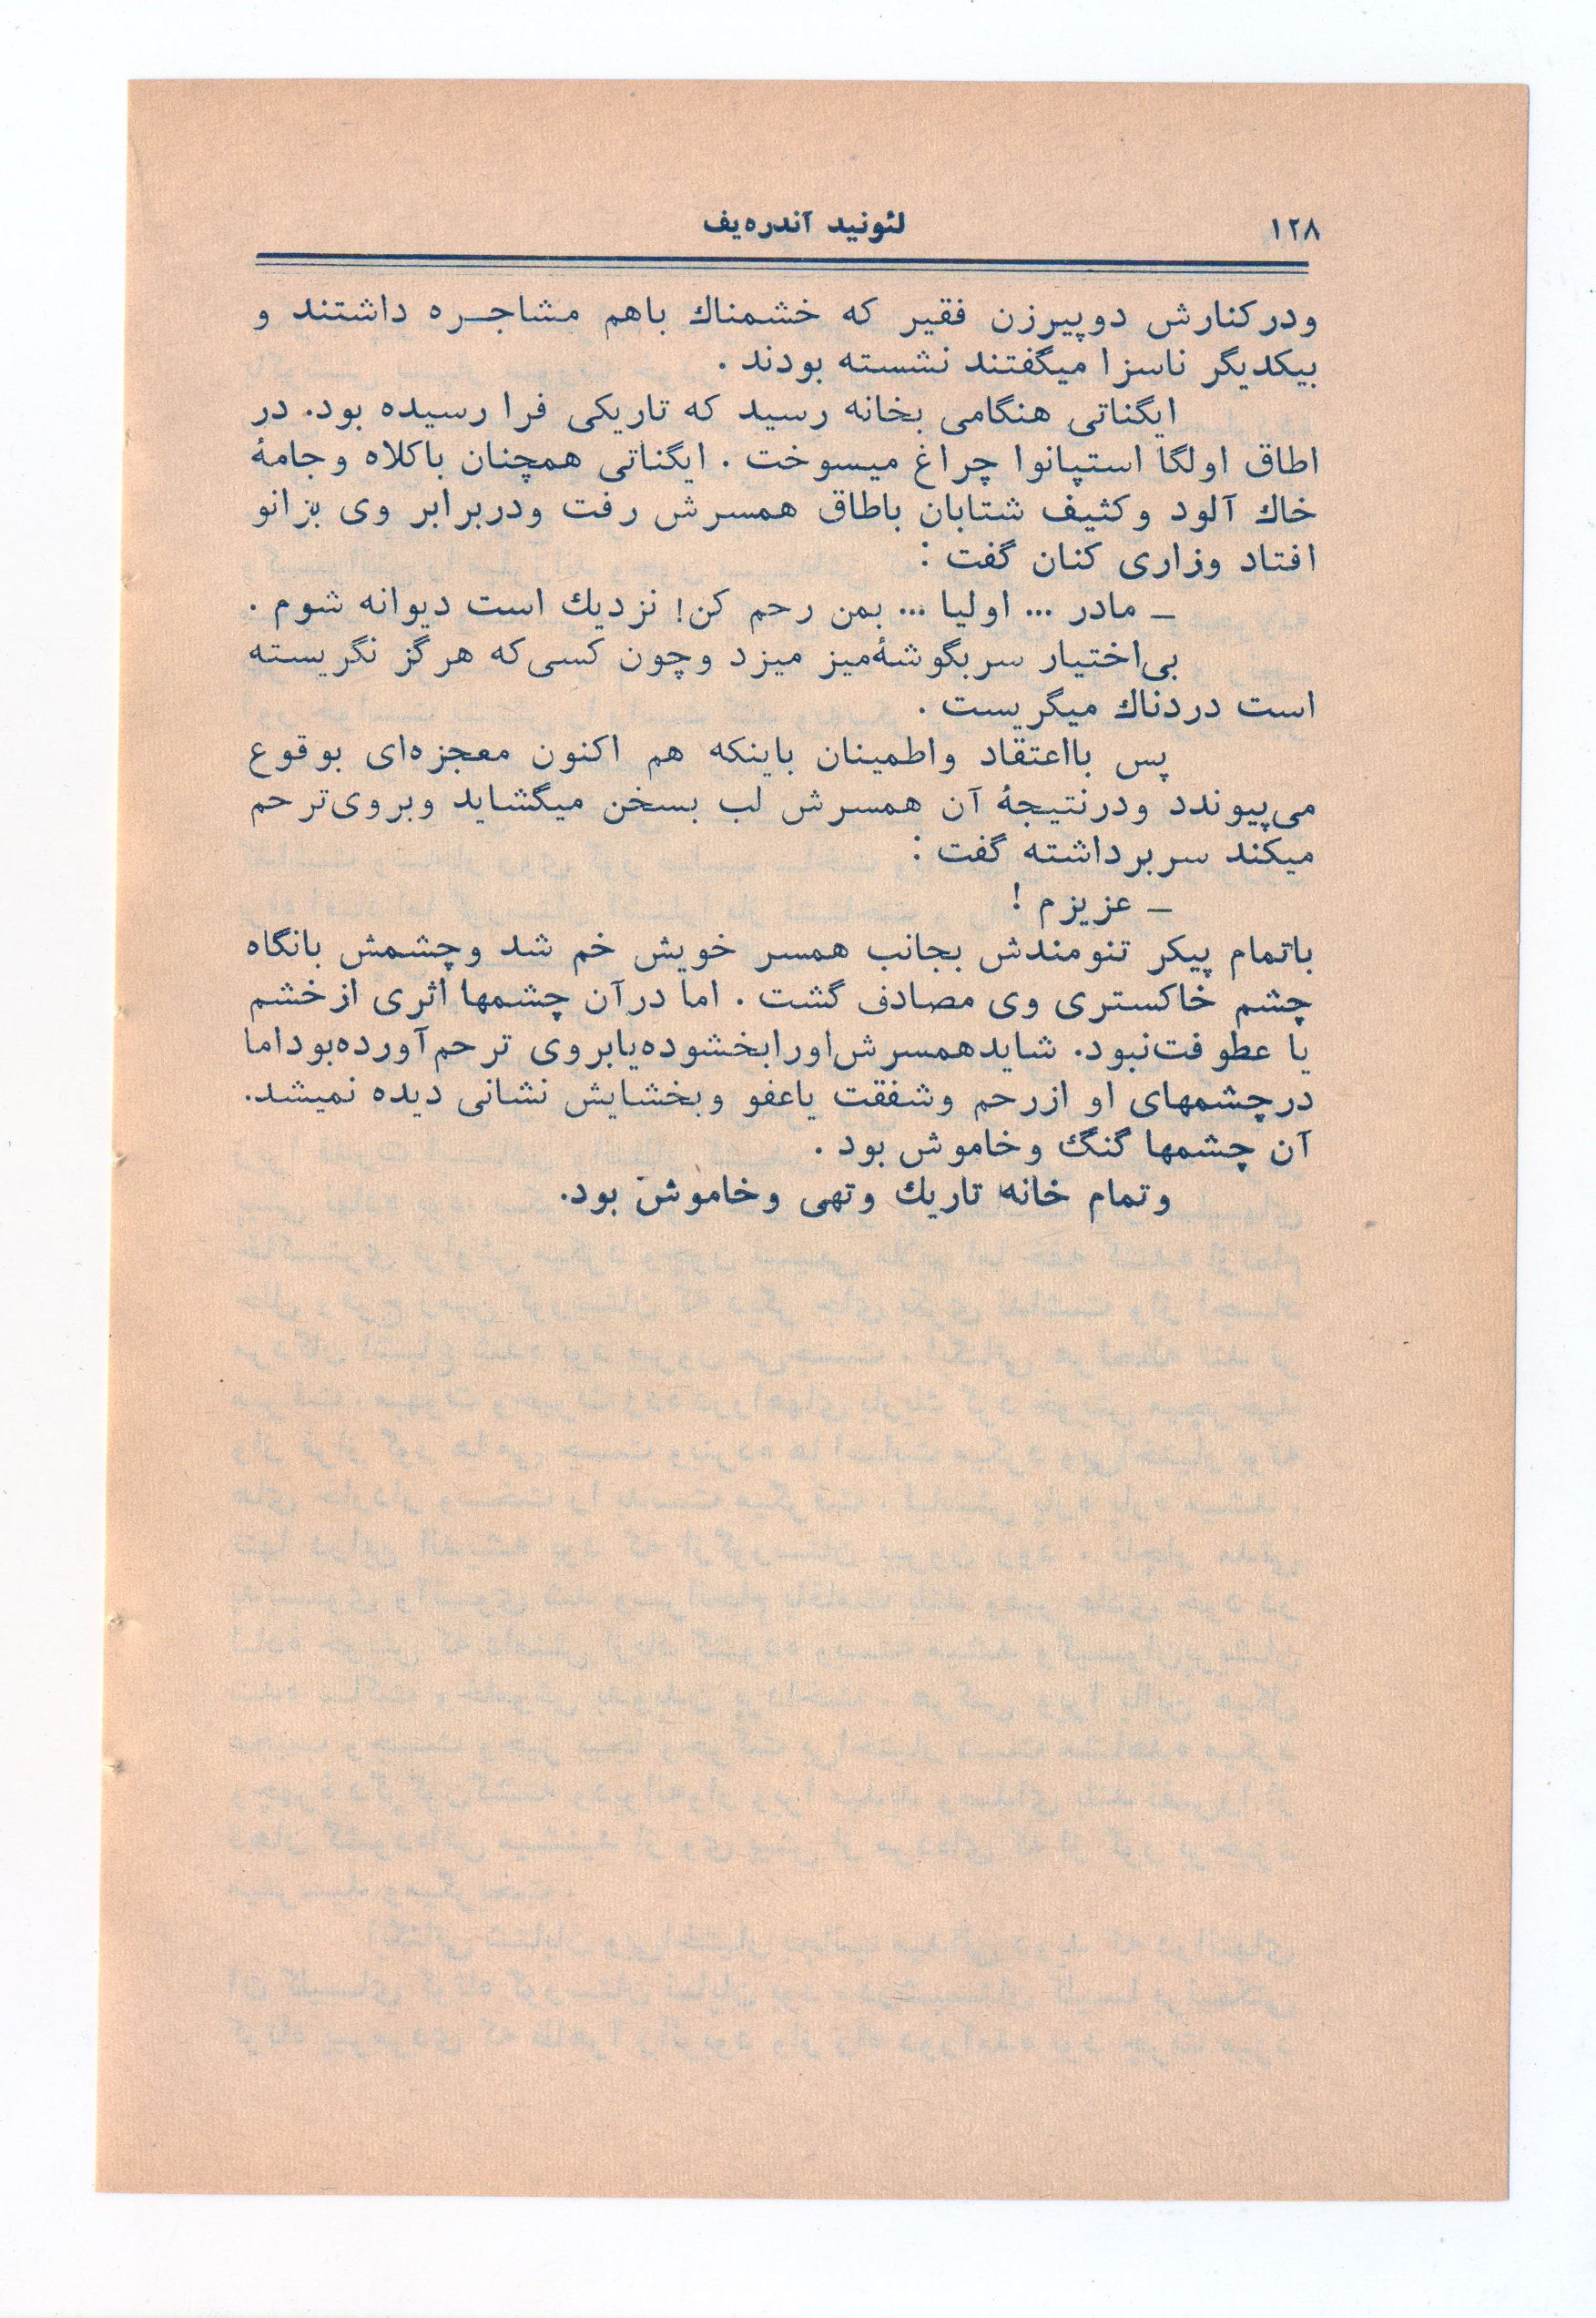 ۱۲۸ لئونید آندره‌یف
ودرکنارش دوپیرزن فقیر که خشمناك باهم مشاجره داشتند و
بیکدیگر ناسزا میگفتند نشسته بودند .
ایگناتی هنگامی بخانه رسید که تاریکی فرا رسیده بود. در
اطاق اولگا استپانوا چراغ میسوخت . ایگناتی همچنان باکلاه وجامهٔ
خاك آلود وکثیف شتابان باطاق همسرش رفت ودربرابر وی بزانو
افتاد وزاری کنان گفت :
ـ مادر ... اولیا ... بمن رحم کن! نزدیك است دیوانه شوم .
بی‌اختیار سربگوشهٔ‌میز میزد وچون کسی‌که هرگز نگریسته
است دردناك میگریست .
پس بااعتقاد واطمینان باینکه هم اکنون معجزه‌ای بوقوع
می‌پیوندد ودرنتیجهٔ آن همسرش لب بسخن میگشاید وبروی‌ترحم
میکند سربرداشته گفت :
ـ عزیزم !
باتمام پیکر تنومندش بجانب همسر خویش خم شد وچشمش بانگاه
چشم خاکستری وی مصادف گشت . اما درآن چشمها اثری ازخشم
یا عطوفت‌نبود. شایدهمسرش‌اورابخشوده‌یابروی ترحم‌آورده‌بوداما
درچشمهای او ازرحم وشفقت یاعفو وبخشایش نشانی دیده نمیشد.
آن چشمها گنگ وخاموش بود .
وتمام خانه تاریك وتهی وخاموش بود.